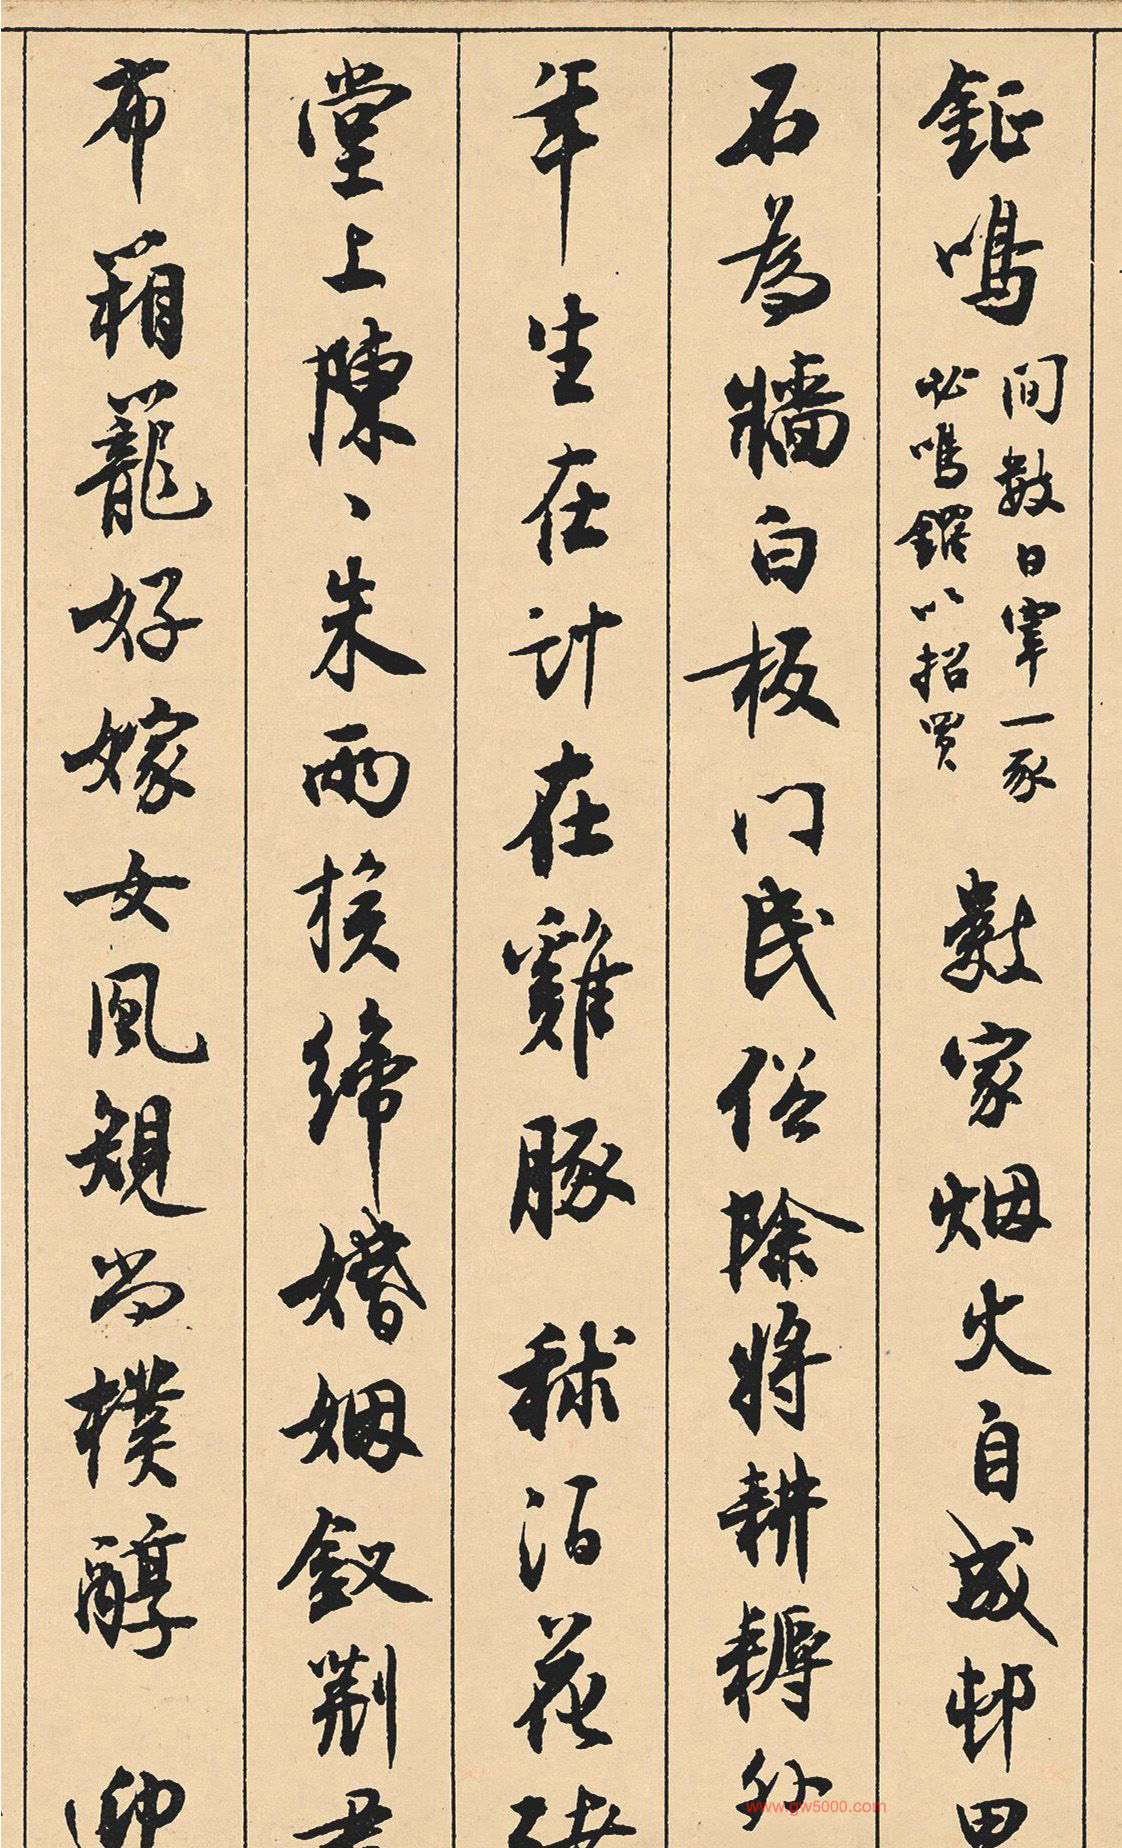 鉦鳴 間數日宰一豕 必鳴鑼以招買 數家烟火自成邨
石為牆白板門民俗除將耕耨外
年生在計在雞豚 秫酒花
堂上陳、朱兩族締婚姻釵荆
布箱籠好嫁女風規尚樸醇
www.gw5000.com